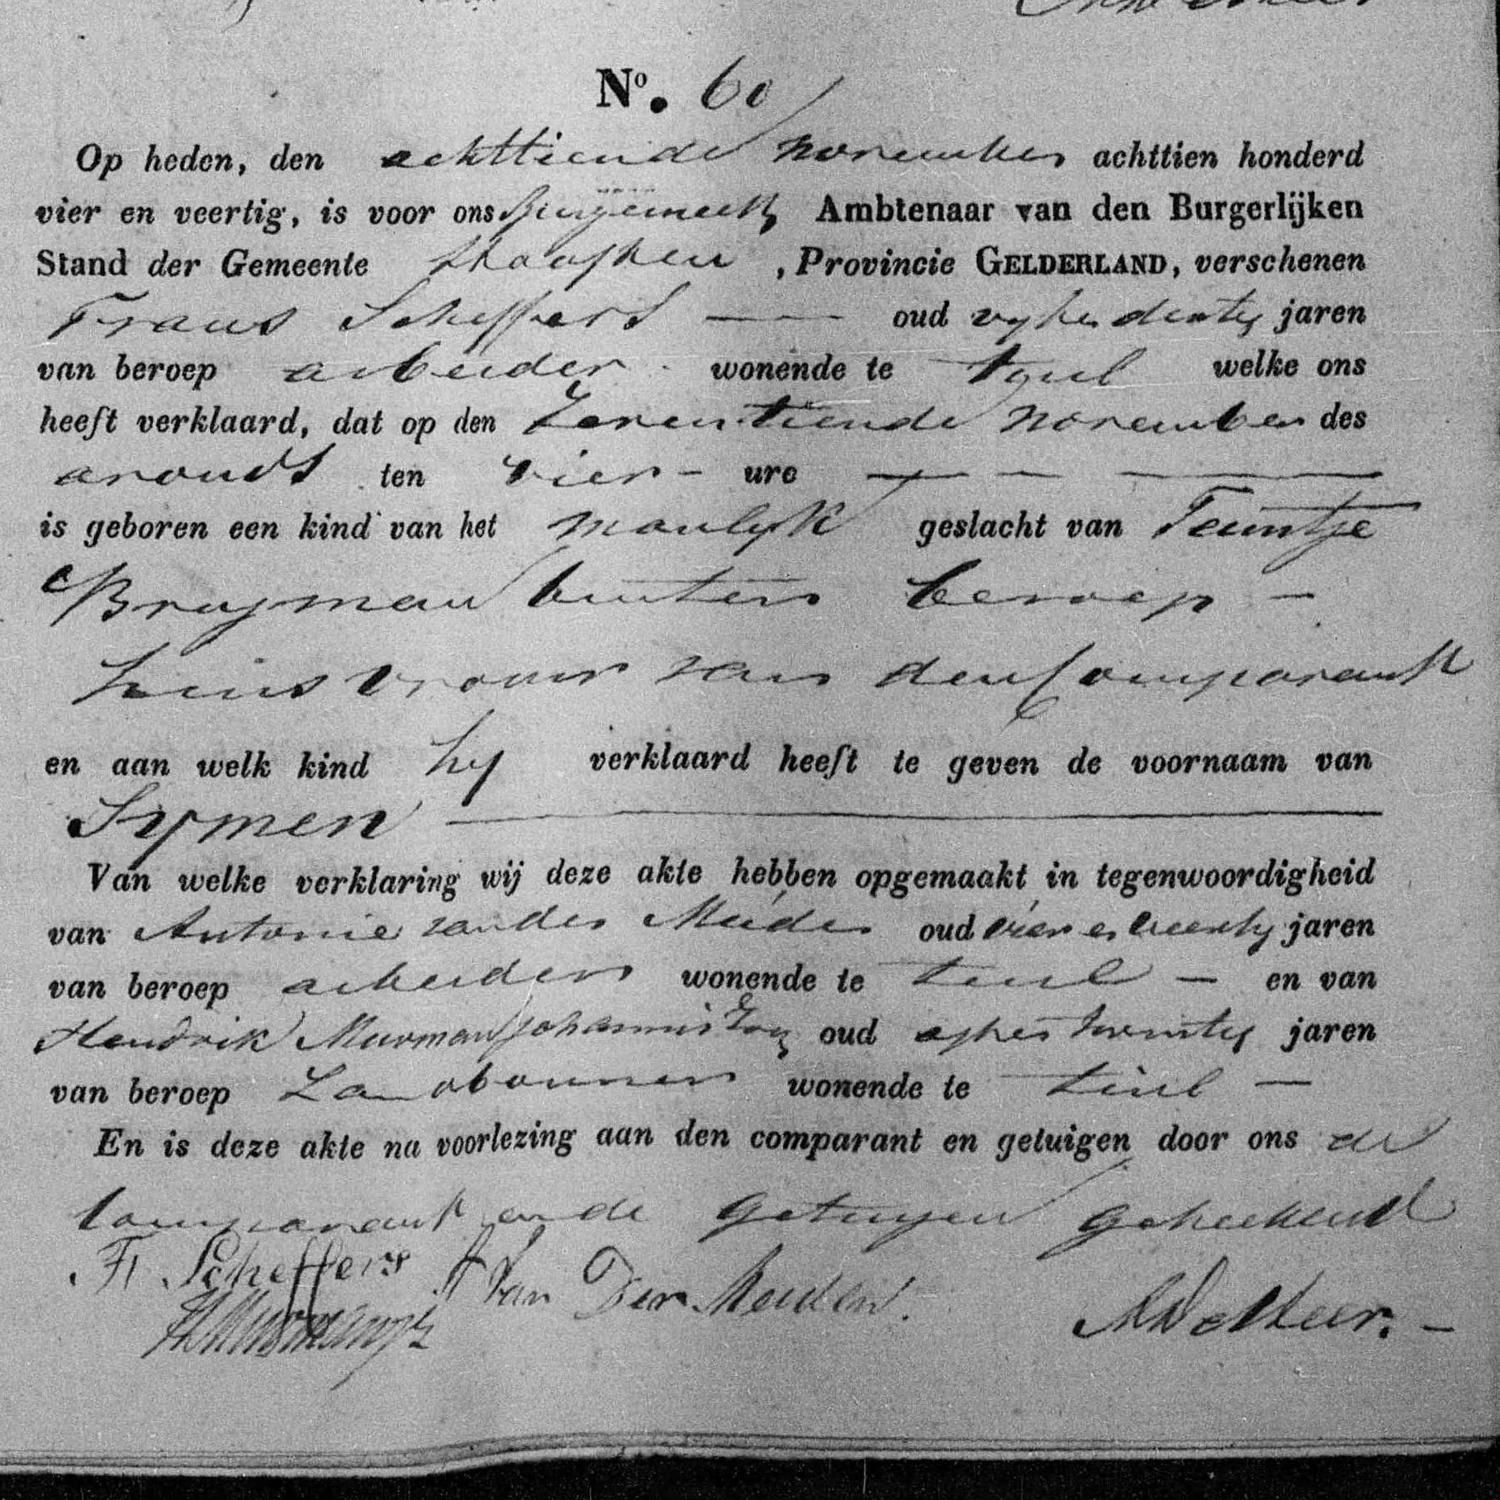 No. 60
Op heden, den achttiende november achttien honderd
vier en veertig, is voor ons Burgemeestr Ambtenaar van den Burgerlijken
Stand der Gemeente Haaften, Provincie GELDERLAND, verschenen
Frans Scheffers oud vyfendertig jaren
van beroep arbeider wonende te Tuil welke ons
heeft verklaard, dat op den zeventiende november des
avonds ten vier ure
is geboren een kind van het manlyk geslacht van Teuntje
Bruyman buiten beroep
huisvrouw van den Comparant
en aan welk kind hy verklaard heeft te geven de voornaam van
Symen
Van welke verklaring wij deze akte hebben opgemaakt in tegenwoordigheid
van Antonie van der Meiden oud vier en veertig jaren
van beroep arbeider wonende te tuil en van
Hendrik Murman Johannis Zoon oud agt en twintig jaren
van beroep Landbouwer wonende te tuil
En is deze akte na voorlezing aan den comparant en getuigen door ons de
Comparant en de getuigen geteekend
F Scheffers A Van Der Meiden